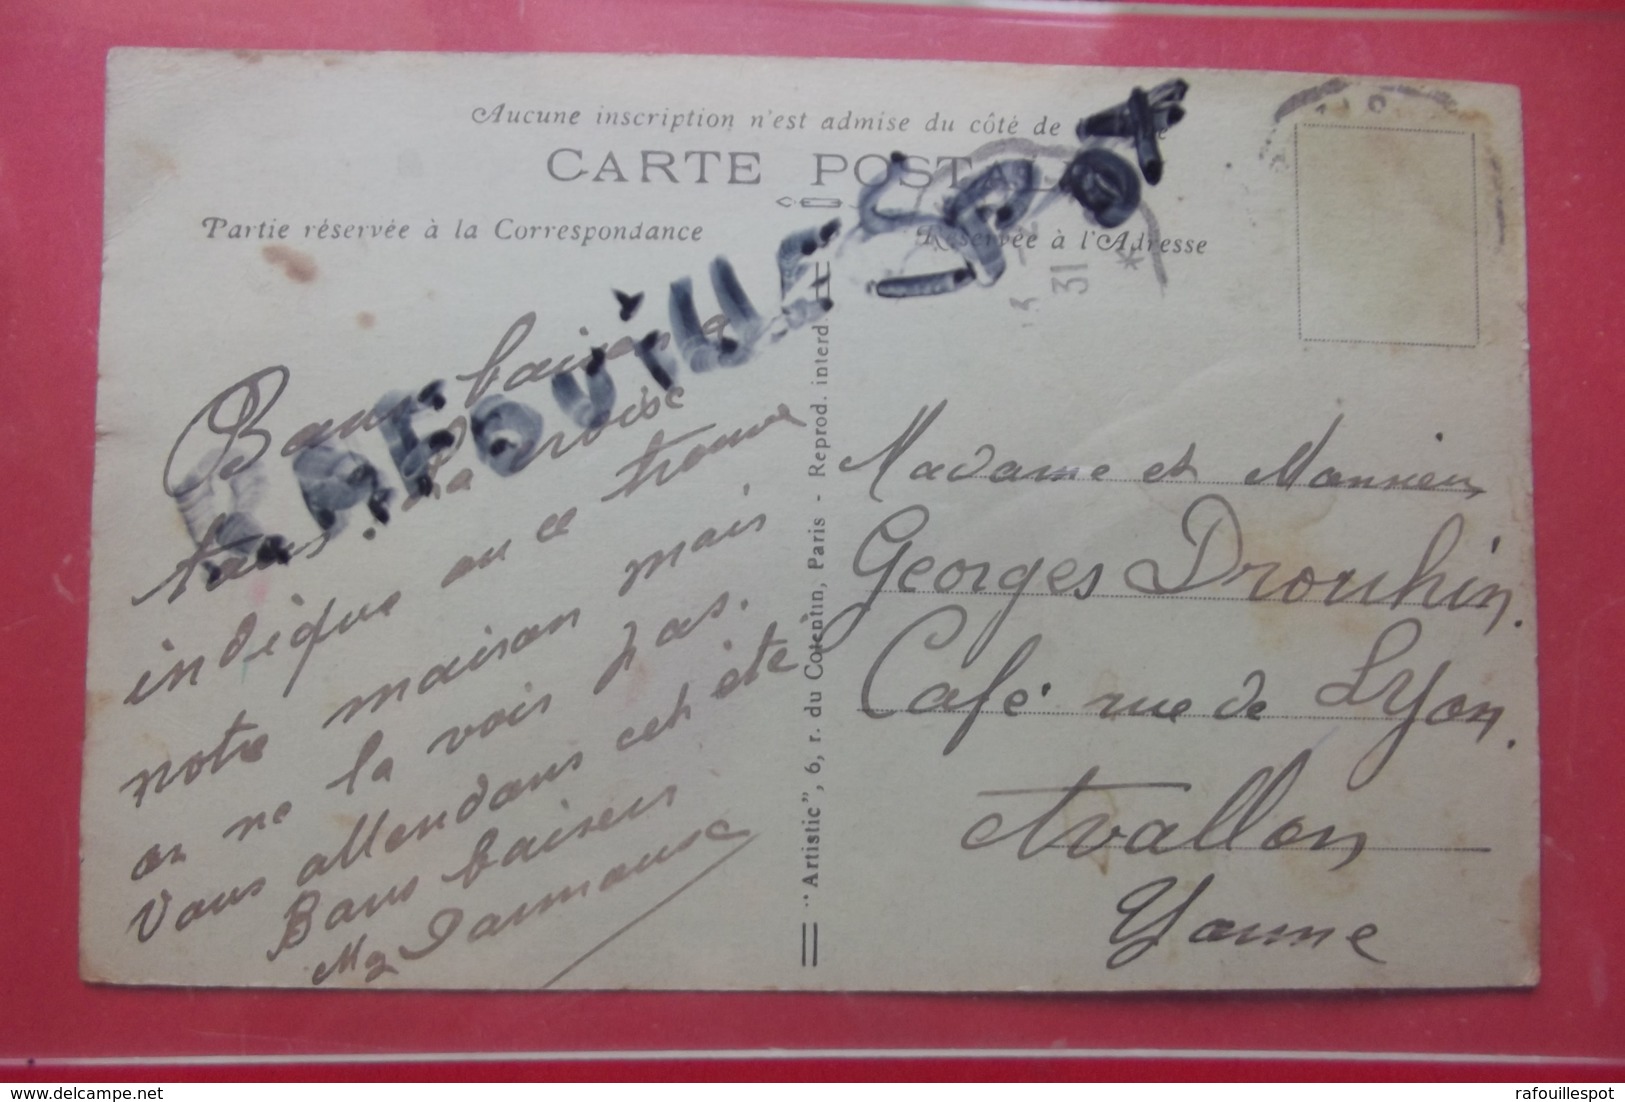 Aucune inscription n'est admise du côté de
CARTE POSTALE
Partie réservée à la Correspondance
Réservée à l'Adresse
RAFOUILLESPOT
31
Bons baisers a
tous. La croise
indique ou ce trouve
notre maison mais
on ne la vois pas.
Vous attendons cet été
Bons baisers
Madame et Monsieur
Georges Drouhin.
Café rue de Lyon.
Avallon
Yonne
"Artistic", 6, r. du Cotentin, Paris - Reprod. interd.
delcampe.net
rafouillespot